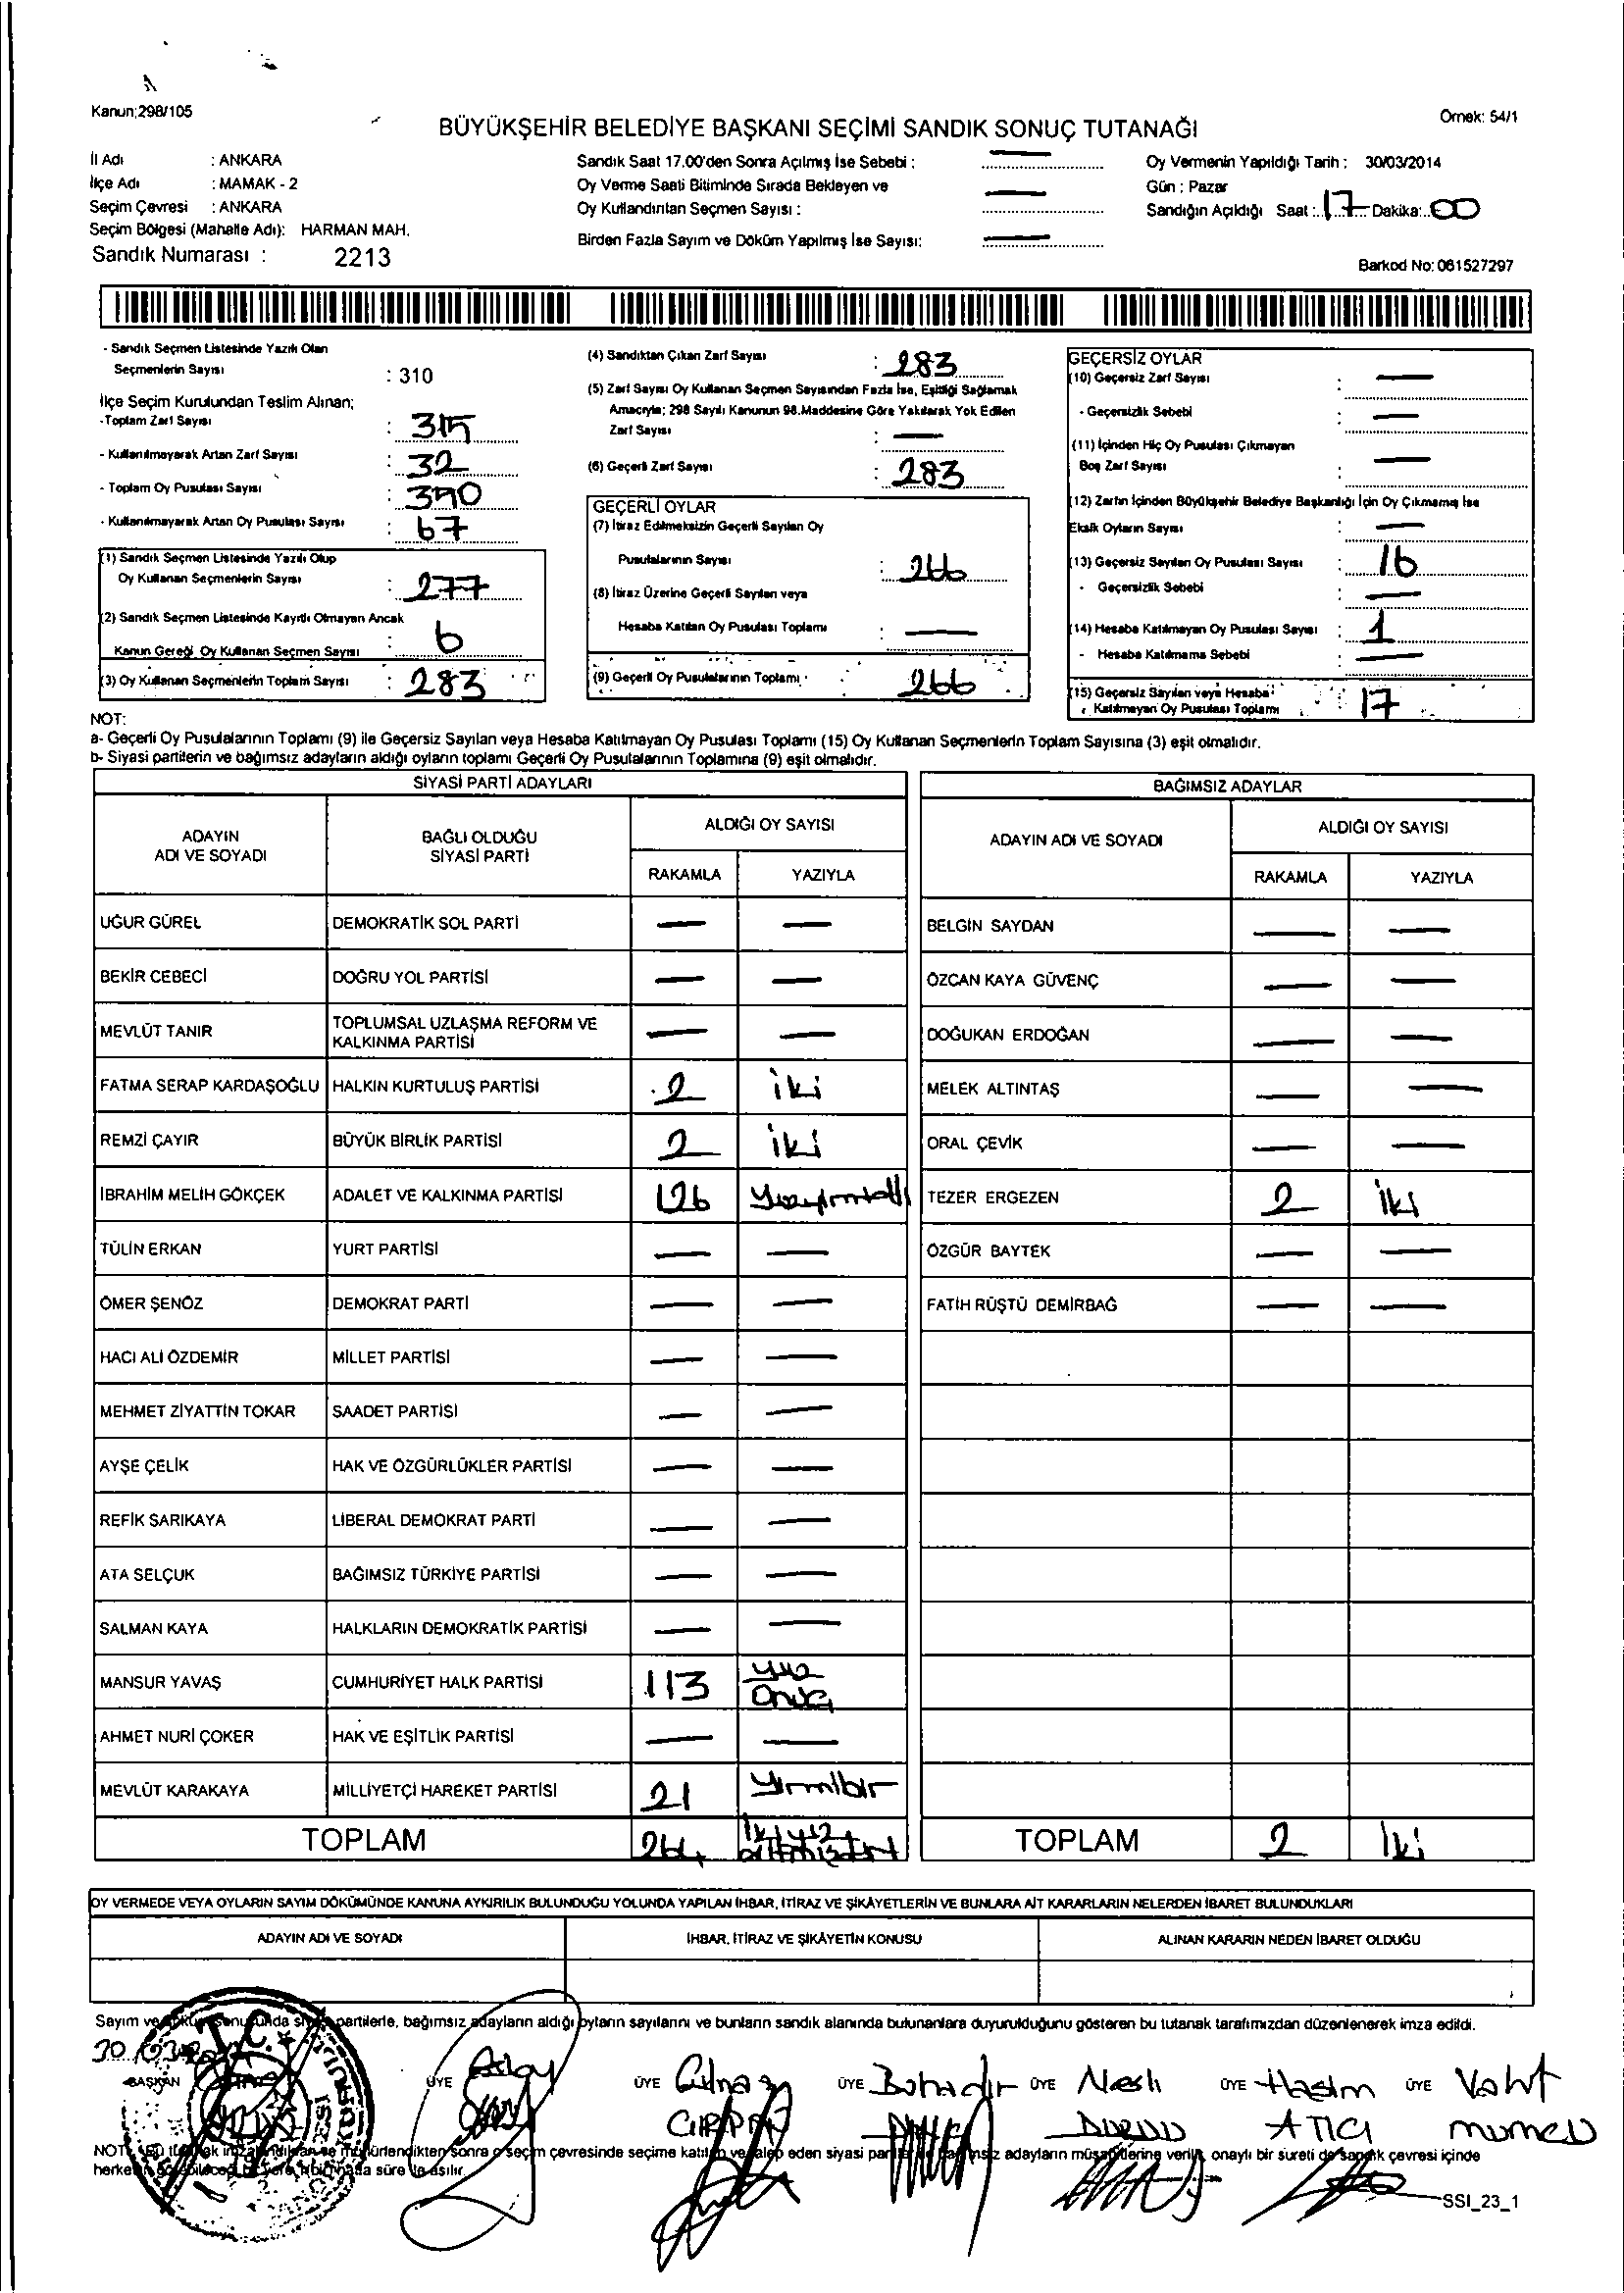 Kanun;298/105
Örnek: 54/1
BÜYÜKŞEHİR BELEDİYE BAŞKANI SEÇİMİ SANDIK SONUÇ TUTANAĞI
İl Adı : ANKARA
İlçe Adı : MAMAK - 2
Seçim Çevresi : ANKARA
Seçim Bölgesi (Mahalle Adı): HARMAN MAH.
Sandık Numarası : 2213
Sandık Saat 17.00'den Sonra Açılmış İse Sebebi : —
Oy Verme Saati Bitiminde Sırada Bekleyen ve
Oy Kullandırılan Seçmen Sayısı : —
Birden Fazla Sayım ve Döküm Yapılmış İse Sayısı: —
Oy Vermenin Yapıldığı Tarih : 30/03/2014
Gün : Pazar
Sandığın Açıldığı Saat : 17 Dakika: 00
Barkod No: 061527297
- Sandık Seçmen Listesinde Yazılı Olan
Seçmenlerin Sayısı : 310
İlçe Seçim Kurulundan Teslim Alınan;
-Toplam Zarf Sayısı : 315
- Kullanılmayarak Artan Zarf Sayısı : 32
- Toplam Oy Pusulası Sayısı :
- Kullanılmayarak Artan Oy Pusulası Sayısı : 67
(1) Sandık Seçmen Listesinde Yazılı Olup
Oy Kullanan Seçmenlerin Sayısı : 277
(2) Sandık Seçmen Listesinde Kayıtlı Olmayan Ancak
Kanun Gereği Oy Kullanan Seçmen Sayısı : 6
(3) Oy Kullanan Seçmenlerin Toplam Sayısı : 283
(4) Sandıktan Çıkan Zarf Sayısı : 283
(5) Zarf Sayısı Oy Kullanan Seçmen Sayısından Fazla İse, Eşitliği Sağlamak
Amacıyla; 298 Sayılı Kanunun 98.Maddesine Göre Yakılarak Yok Edilen
Zarf Sayısı : —
(6) Geçerli Zarf Sayısı : 283
GEÇERLİ OYLAR
(7) İtiraz Edilmeksizin Geçerli Sayılan Oy
Pusulalarının Sayısı : 266
(8) İtiraz Üzerine Geçerli Sayılan veya
Hesaba Katılan Oy Pusulası Toplamı : —
(9) Geçerli Oy Pusulalarının Toplamı : 266
GEÇERSİZ OYLAR
(10) Geçersiz Zarf Sayısı : —
- Geçersizlik Sebebi : —
(11) İçinden Hiç Oy Pusulası Çıkmayan
Boş Zarf Sayısı : —
(12) Zarfın İçinden Büyükşehir Belediye Başkanlığı İçin Oy Çıkmamış İse
Eksik Oyların Sayısı : —
(13) Geçersiz Sayılan Oy Pusulası Sayısı : 16
- Geçersizlik Sebebi : —
(14) Hesaba Katılmayan Oy Pusulası Sayısı : 1
- Hesaba Katılmama Sebebi : —
(15) Geçersiz Sayılan veya Hesaba
Katılmayan Oy Pusulası Toplamı : 17
NOT:
a- Geçerli Oy Pusulalarının Toplamı (9) ile Geçersiz Sayılan veya Hesaba Katılmayan Oy Pusulası Toplamı (15) Oy Kullanan Seçmenlerin Toplam Sayısına (3) eşit olmalıdır.
b- Siyasi partilerin ve bağımsız adayların aldığı oyların toplamı Geçerli Oy Pusulalarının Toplamına (9) eşit olmalıdır.
SİYASİ PARTİ ADAYLARI
ADAYIN ADI VE SOYADI BAĞLI OLDUĞU SİYASİ PARTİ ALDIĞI OY SAYISI
RAKAMLA YAZIYLA
UĞUR GÜREL DEMOKRATİK SOL PARTİ — —
BEKİR CEBECİ DOĞRU YOL PARTİSİ — —
MEVLÜT TANIR TOPLUMSAL UZLAŞMA REFORM VE KALKINMA PARTİSİ — —
FATMA SERAP KARDAŞOĞLU HALKIN KURTULUŞ PARTİSİ 2 iki
REMZİ ÇAYIR BÜYÜK BİRLİK PARTİSİ 2 iki
İBRAHİM MELİH GÖKÇEK ADALET VE KALKINMA PARTİSİ 126 Yüzyirmialtı
TÜLİN ERKAN YURT PARTİSİ — —
ÖMER ŞENÖZ DEMOKRAT PARTİ — —
HACI ALİ ÖZDEMİR MİLLET PARTİSİ — —
MEHMET ZİYATTİN TOKAR SAADET PARTİSİ — —
AYŞE ÇELİK HAK VE ÖZGÜRLÜKLER PARTİSİ — —
REFİK SARIKAYA LİBERAL DEMOKRAT PARTİ — —
ATA SELÇUK BAĞIMSIZ TÜRKİYE PARTİSİ — —
SALMAN KAYA HALKLARIN DEMOKRATİK PARTİSİ — —
MANSUR YAVAŞ CUMHURİYET HALK PARTİSİ 113 yüz onüç
AHMET NURİ ÇOKER HAK VE EŞİTLİK PARTİSİ — —
MEVLÜT KARAKAYA MİLLİYETÇİ HAREKET PARTİSİ 21 Yirmibir
TOPLAM 264 İkiyüz altmışdört
BAĞIMSIZ ADAYLAR
ADAYIN ADI VE SOYADI ALDIĞI OY SAYISI
RAKAMLA YAZIYLA
BELGİN SAYDAN — —
ÖZCAN KAYA GÜVENÇ — —
DOĞUKAN ERDOĞAN — —
MELEK ALTINTAŞ — —
ORAL ÇEVİK — —
TEZER ERGEZEN 2 iki
ÖZGÜR BAYTEK — —
FATİH RÜŞTÜ DEMİRBAĞ — —
TOPLAM 2 İki
OY VERMEDE VEYA OYLARIN SAYIM DÖKÜMÜNDE KANUNA AYKIRILIK BULUNDUĞU YOLUNDA YAPILAN İHBAR, İTİRAZ VE ŞİKÂYETLERİN VE BUNLARA AİT KARARLARIN NELERDEN İBARET BULUNDUKLARI
ADAYIN ADI VE SOYADI İHBAR, İTİRAZ VE ŞİKÂYETİN KONUSU ALINAN KARARIN NEDEN İBARET OLDUĞU
Sayım ve partilerle, bağımsız adayların aldığı oyların sayılarını ve bunların sandık alanında bulunanlara duyurulduğunu gösteren bu tutanak tarafımızdan düzenlenerek imza edildi.
T.C.
BAŞKAN ÜYE ÜYE ÜYE Bahadır ÜYE Neslı ÜYE Hasim ÜYE
ATICI
NOT: sonra o seçim çevresinde seçime katılan ve talep eden siyasi adayların müşahitlerine verilir, onaylı bir sureti de sandık çevresi içinde
süre ile asılır.
SSI_23_1